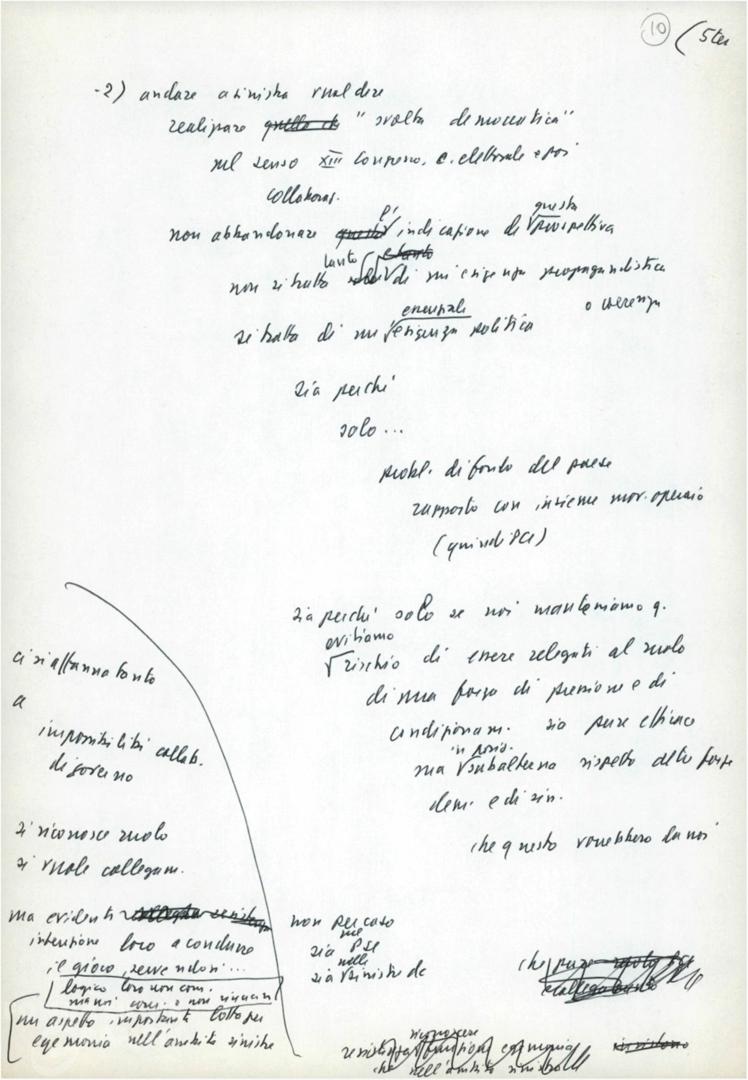 10 (5 ter
-2) andare a sinistra vuol dire
realizzare quello che "svolta democratica"
nel senso XIII congresso, c. elettorale e poi
collaboraz.
non abbandonare questa indicazione di questa prospettiva
non si tratta tanto di un'esigenza propagandistica
o coerenza
si tratta di un'essenziale esigenza politica
sia perché
solo...
probl. di fondo del paese
rapporto con insieme mov. operaio
(quindi PCI)
sia perché solo se noi manteniamo q.
evitiamo
rischio di essere relegati al ruolo
di una forza di pressione e di
condizionam. sia pure efficace
in posiz.
ma subalterna rispetto altre forze
dem. e di sin.
che questo vorrebbero da noi
ci si affanna tanto
a
impossibilità collab.
di governo
si riconosce ruolo
si vuole collegam.
ma evidente
intenzione loro a condurre
il gioco, servendosi...
logico loro non com.
ma noi com. e non rinunciam
un aspetto importante lotta per
egemonia nell'ambito sinistre
non per caso
sia nel PSE
sia nelle sinistre dc
che pure ruolo
riconoscere
funzioni egemonia
che nell'ambito sinistra